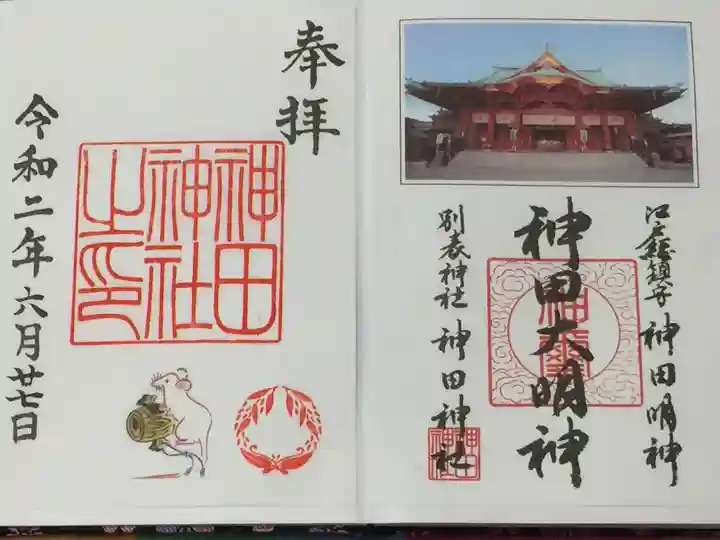 江戸総鎮守 神田明神
神田大明神
別表神社 神田神社
奉拝
神田
神社
之印
令和二年六月廿七日